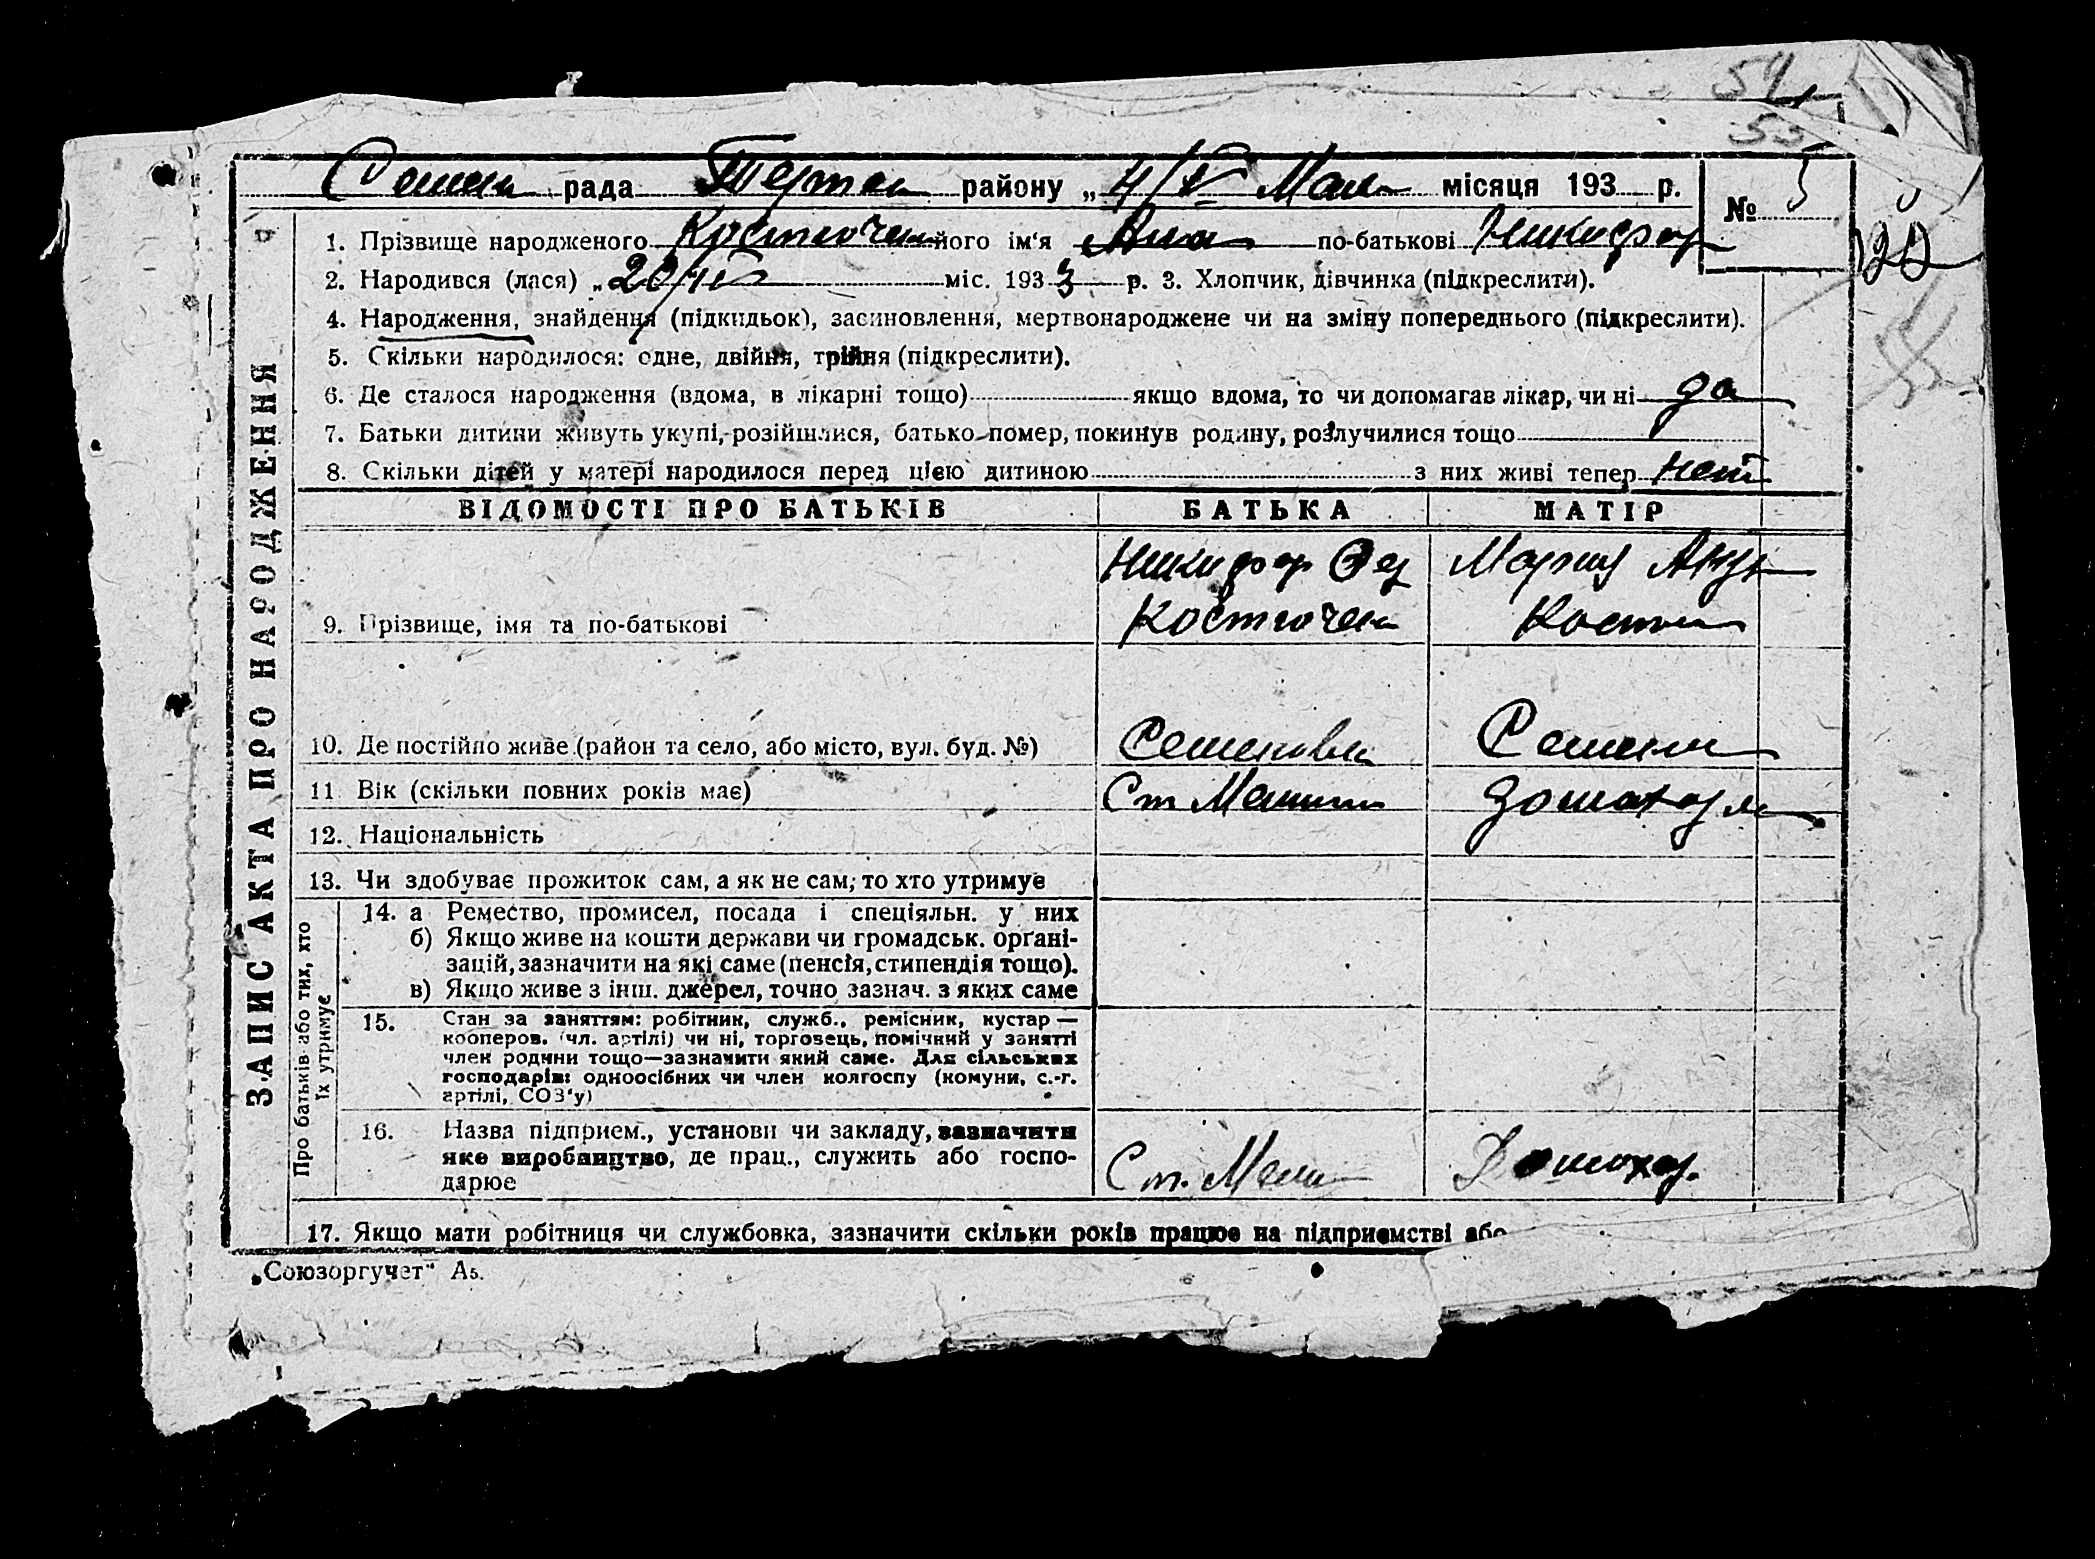 54
53
Семен рада Терпен району „4/V Мая місяця 193 р. № 5
1. Прізвище народженого Костючен його ім'я Анна по-батькові Никифор
2. Народився (лася) „20/IV міс. 1933 р. 3. Хлопчик, дівчинка (підкреслити).
4. Народження, знайдення (підкидьок), засиновлення, мертвонароджене чи на зміну попереднього (підкреслити).
5. Скільки народилося: одне, двійня, трійня (підкреслити).
6. Де сталося народження (вдома, в лікарні тощо) якщо вдома, то чи допомагав лікар, чи ні да
7. Батьки дитини живуть укупі, розійшлися, батько помер, покинув родину, розлучилися тощо
8. Скільки дітей у матері народилося перед цією дитиною з них живі тепер нет
ЗАПИС АКТА ПРО НАРОДЖЕННЯ
ВІДОМОСТІ ПРО БАТЬКІВ БАТЬКА МАТІР
Никифор Фед Мария
9. Прізвище, імя та по-батькові Костючен Костюч
10. Де постійно живе (район та село, або місто, вул. буд. №) Семеновка Семен
11 Вік (скільки повних років має) Ст Машин домохозя
12. Національність
13. Чи здобуває прожиток сам, а як не сам, то хто утримує
Про батьків або тих, хто їх утримує
14. а Ремество, промисел, посада і спеціяльн. у них
б) Якщо живе на кошти держави чи громадськ. органі-
зацій, зазначити на які саме (пенсія, стипендія тощо).
в) Якщо живе з інш. джерел, точно зазнач. з яких саме
15. Стан за заняттям: робітник, служб., ремісник, кустар —
кооперов. (чл. артілі) чи ні, торговець, помічний у занятті
член родини тощо—зазначити який саме. Для сільських
господарів: одноосібних чи член колгоспу (комуни, с.-г.
артілі, СОЗ'у)
16. Назва підприєм., установи чи закладу, зазначити
яке виробництво, де прац., служить або госпо-
дарює Ст. Маш Домохоз.
17. Якщо мати робітниця чи службовка, зазначити скільки років працює на підприємстві або
„Союзоргучет" А5.